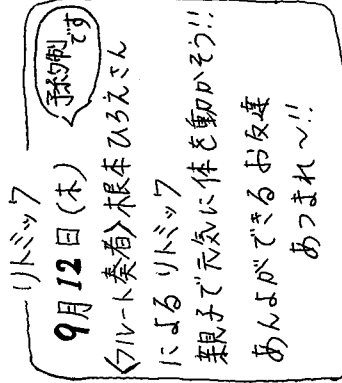 リトミック
9月12日(木)
予約制
です
〈フルート奏者〉根本ひろえさん
による リトミック
親子で元気に体を動かそう!!
あんよができるお友達
あつまれ～!!